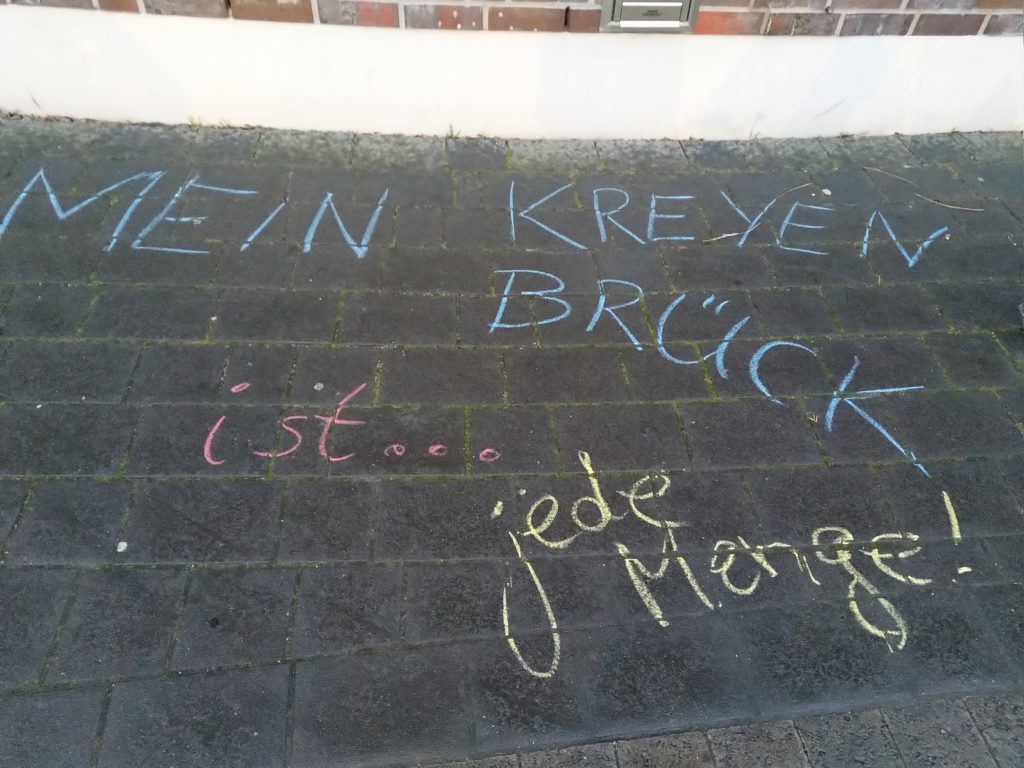 MEIN KREYEN
BRÜCK
ist...
jede
Menge!